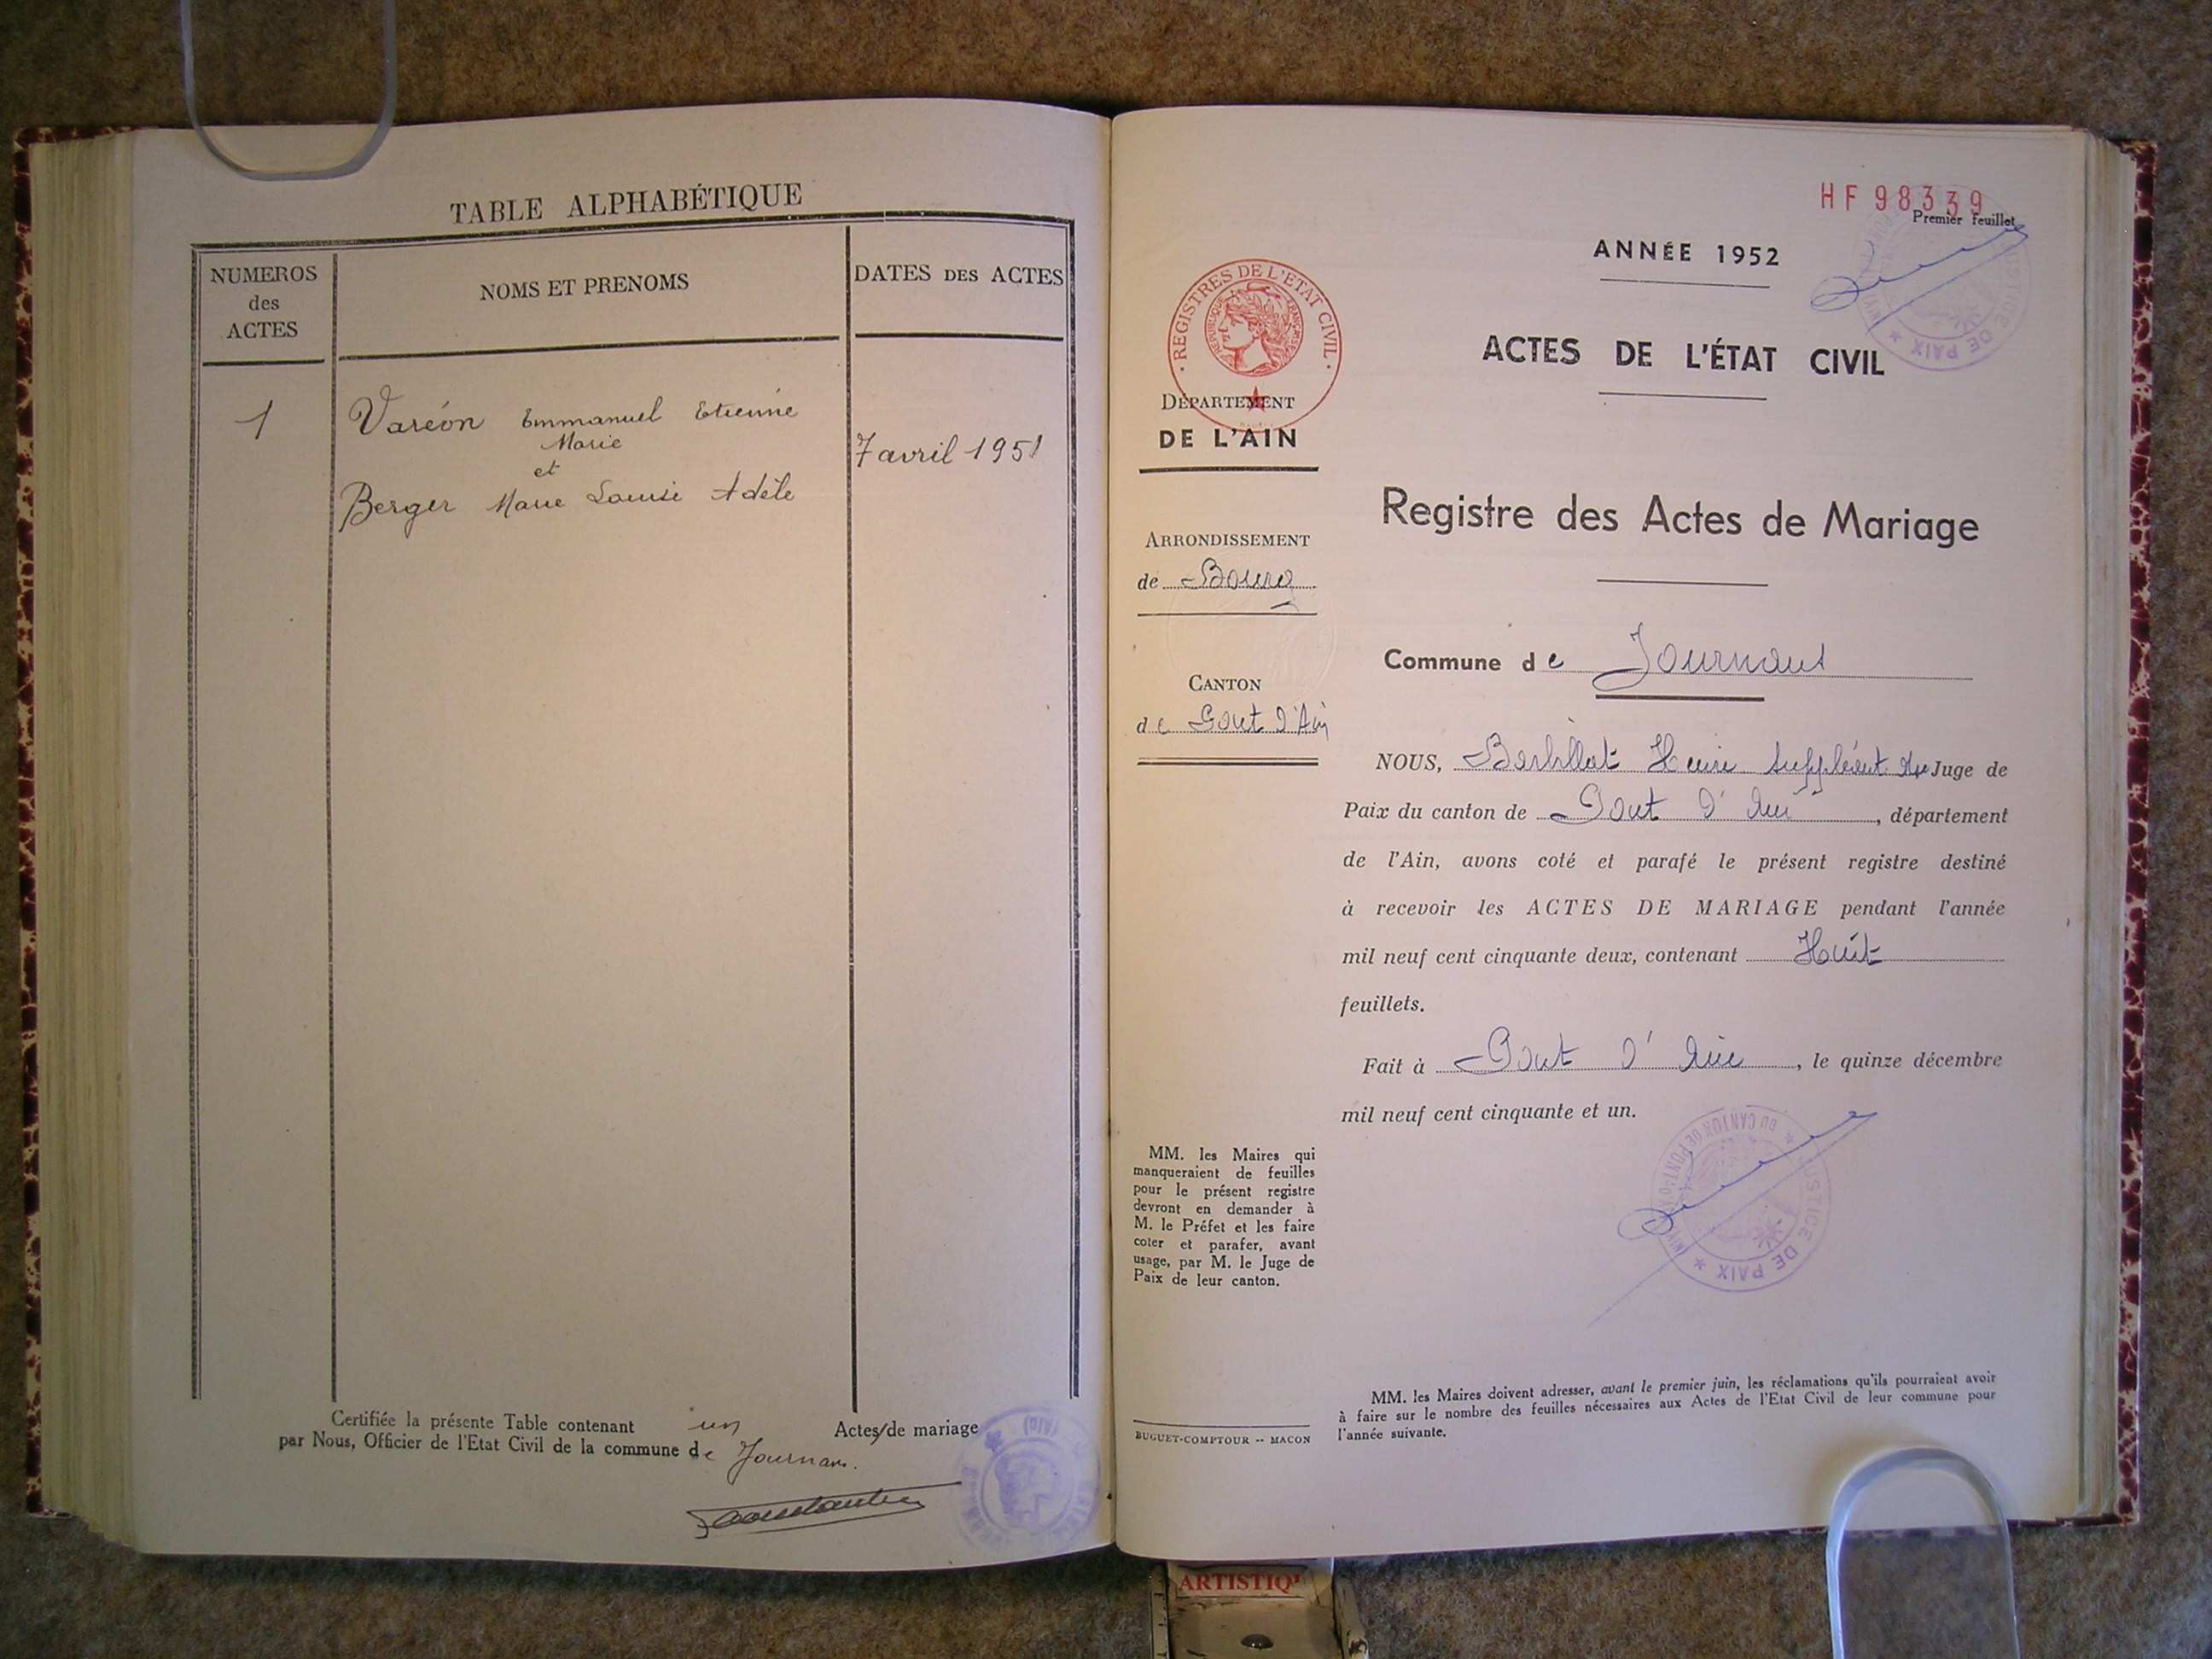 TABLE ALPHABÉTIQUE
NUMEROS
des
ACTES
NOMS ET PRENOMS
DATES DES ACTES
1
Varéon Emmanuel Etienne
Marie
et
Berger Marie Louise Adèle
7 avril 1951
Certifiée la présente Table contenant un Actes de mariage
par Nous, Officier de l'Etat Civil de la commune de Journans.
HF 98339
Premier feuillet
ANNÉE 1952
ACTES DE L'ÉTAT CIVIL
REGISTRES DE L'ETAT CIVIL
RÉPUBLIQUE FRANÇAISE
DÉPARTEMENT
DE L'AIN
ARRONDISSEMENT
de Bourg
CANTON
de Pont d'Ain
MM. les Maires qui
manqueraient de feuilles
pour le présent registre
devront en demander à
M. le Préfet et les faire
coter et parafer, avant
usage, par M. le Juge de
Paix de leur canton.
BUGUET-COMPTOUR -- MACON
Registre des Actes de Mariage
Commune de Journans
NOUS, Henri Suppléant du Juge de
Paix du canton de Pont d'Ain, département
de l'Ain, avons coté et parafé le présent registre destiné
à recevoir les ACTES DE MARIAGE pendant l'année
mil neuf cent cinquante deux, contenant Huit
feuillets.
Fait à Pont d'Ain, le quinze décembre
mil neuf cent cinquante et un.
JUSTICE DE PAIX
DU CANTON DE PONT-D'AIN
MM. les Maires doivent adresser, avant le premier juin, les réclamations qu'ils pourraient avoir
à faire sur le nombre des feuilles nécessaires aux Actes de l'Etat Civil de leur commune pour
l'année suivante.
ARTISTIQ